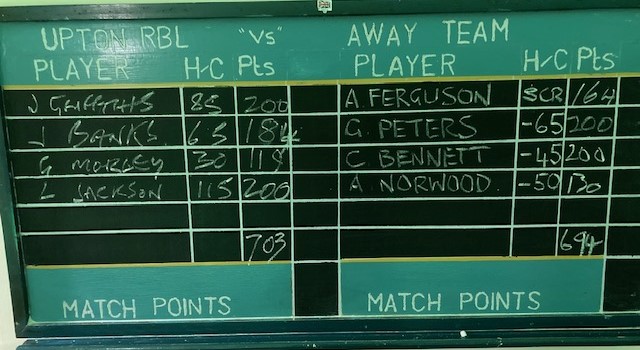 UPTON RBL "VS" AWAY TEAM
PLAYER H/C Pts PLAYER H/C Pts
J GRIFFITHS 85 200 A. FERGUSON SCR 164
J BANKS 65 184 G. PETERS -65 200
G MORLEY 30 119 C. BENNETT -45 200
L JACKSON 115 200 A. NORWOOD. -50 130
703 694
MATCH POINTS MATCH POINTS